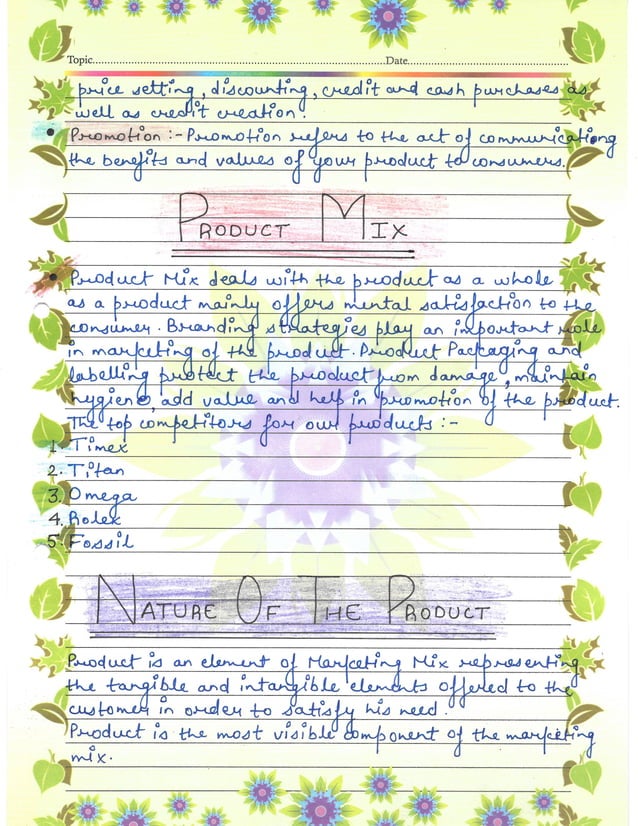 Topic............Date............
price setting, discounting, credit and cash purchases as
well as credit creation.
• Promotion :- Promotion refers to the act of communicationg
the benefits and values of your product to consumers.
PRODUCT MIX
• Product Mix deals with the product as a whole
as a product mainly offers mental satisfaction to the
consumer. Branding strategies play an important role
in marketing of the product. Product Packaging and
labelling protect the product from damage, maintain
hygiene, add value and help in promotion of the product.
The top competitors for our products :-
1. Timex
2. Titan
3. Omega
4. Rolex
5. Fossil
NATURE OF THE PRODUCT
Product is an element of Marketing Mix representing
the tangible and intangible elements offered to the
customer in order to satisfy his need.
Product is the most visible component of the marketing
mix.